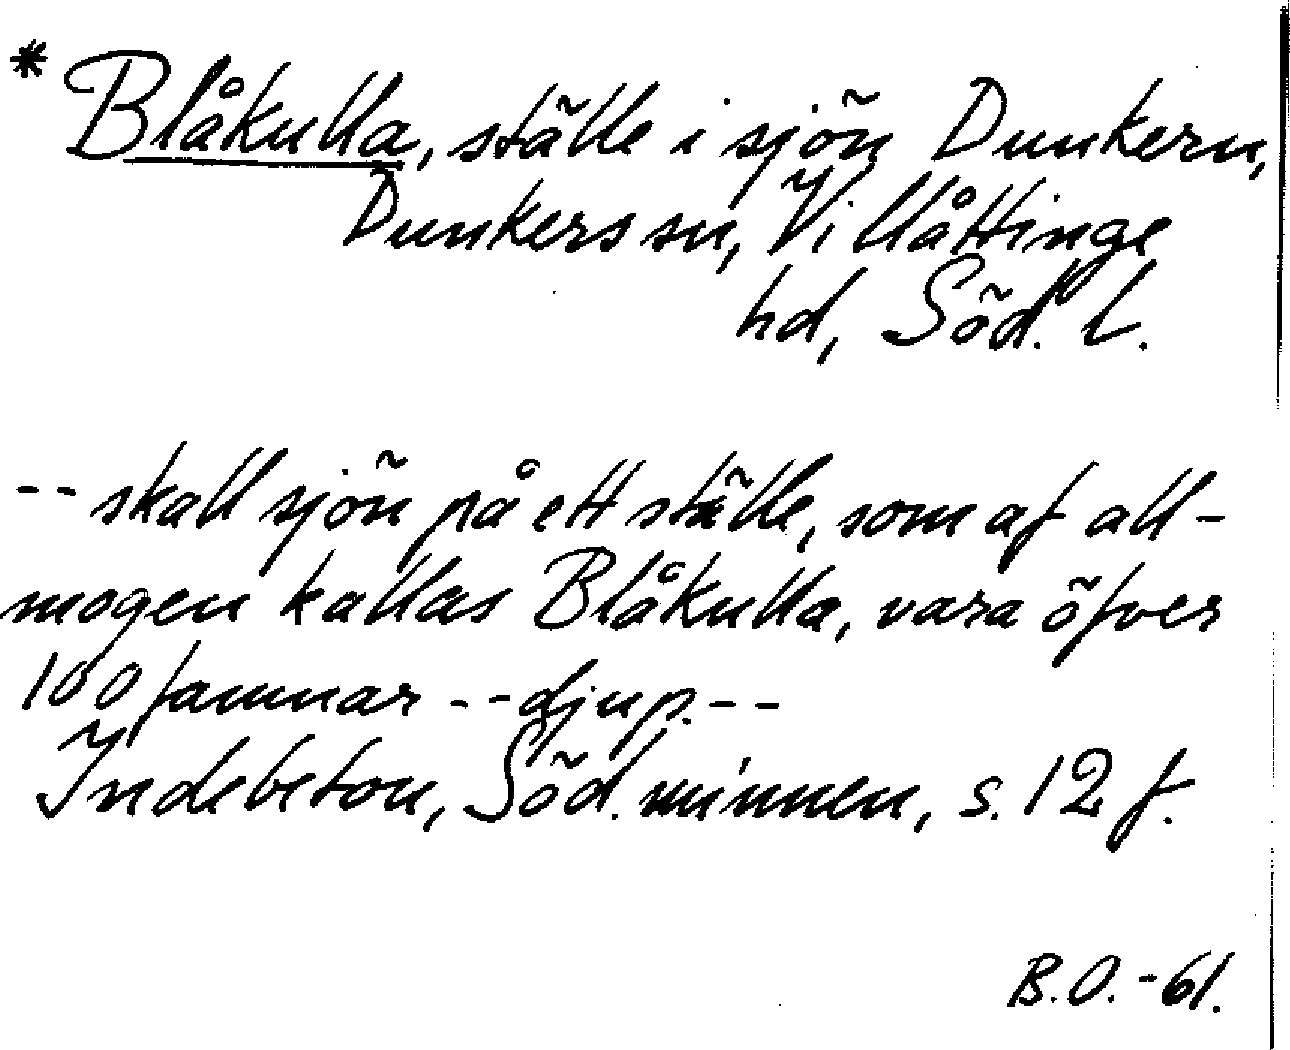 * Blåkulla, ställe i sjön Dunkern,
Dunkers sn, Villåttinge
hd, Söd. l.
-- skall sjön på ett ställe, som af all-
mogen kallas Blåkulla, vara öfver
100 famnar -- djup. --
Indebetou, Söd. minnen, s. 12 f.
B.O. -61.